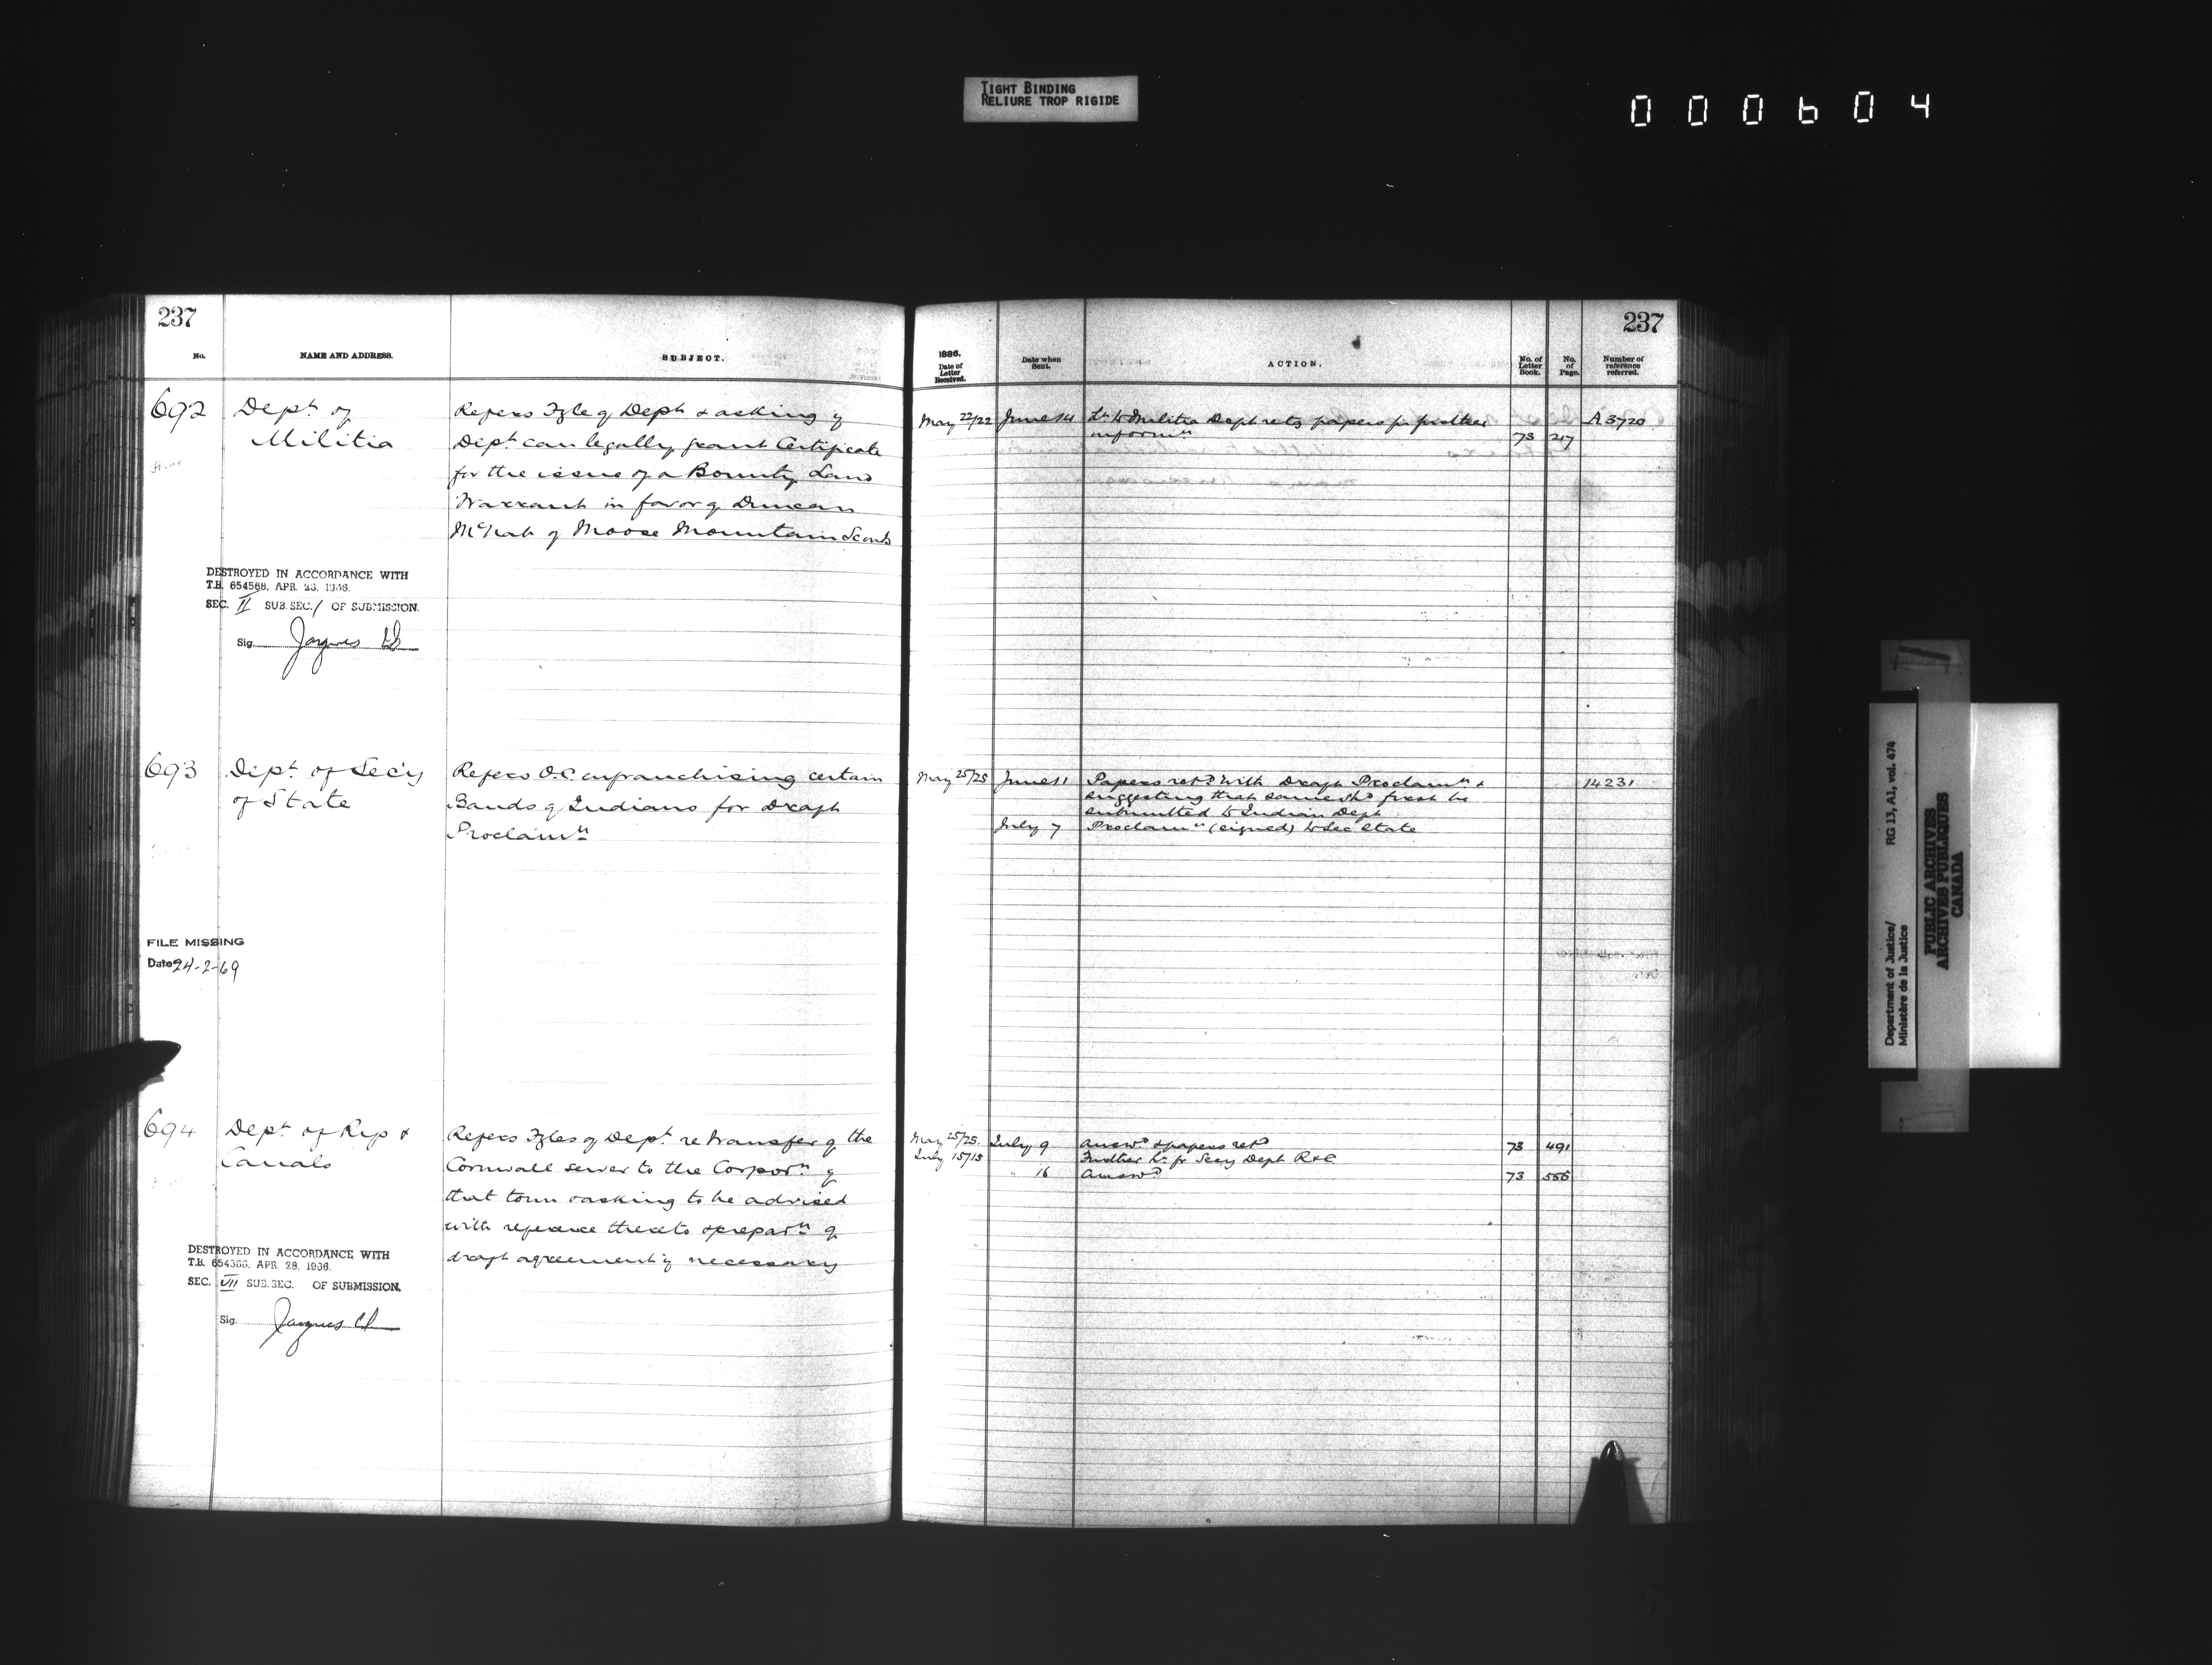 TIGHT BINDING
RELIURE TROP RIGIDE
000604
237
No.
NAME AND ADDRESS.
SUBJECT.
692
Dept. of
Militia
Refers File of Dept & asking if
Dept. can legally grant Certificate
for the issue of a Bounty Land
Warrant in favor of Duncan
McNab of Moose Mountain Scouts
DESTROYED IN ACCORDANCE WITH
T.B. 654568, APR. 28, 1966.
SEC. II SUB.SEC. / OF SUBMISSION.
Sig. Jacques
693
Dept. of Sec'y
of State
Refers O.C. enfranchising certain
Bands of Indians for draft
Proclamn
FILE MISSING
Date 24-2-69
694
Dept. of Rys &
Canals
Refers Files of Dept. re transfer of the
Cornwall sewer to the Corporn of
that town & asking to be advised
with reference thereto & preparn of
draft agreement if necessary
DESTROYED IN ACCORDANCE WITH
T.B. 654568, APR. 28, 1966.
SEC. VII SUB.SEC. OF SUBMISSION.
Sig. Jacques
237
1886.
Date of
Letter
Received.
Date when
Sent.
ACTION.
No. of
Letter
Book.
No.
of
Page.
Number of
reference
referred.
May 22/22 June 14 Lr to Militia Dept retg papers for further A 3720
informn 73 217
May 25/25 June 11 Papers retd with Draft Proclamn & 14231
suggesting that same shd first be
submitted to Indian Dept
July 7 Proclamn (signed) to Sec State
May 25/25. July 9 answd & papers retd 73 491
July 15/15 Further Lr fr Secy Dept R & C
" 16 answd 73 556
Department of Justice/ RG 13, A1, vol. 474
Ministère de la Justice
PUBLIC ARCHIVES
ARCHIVES PUBLIQUES
CANADA